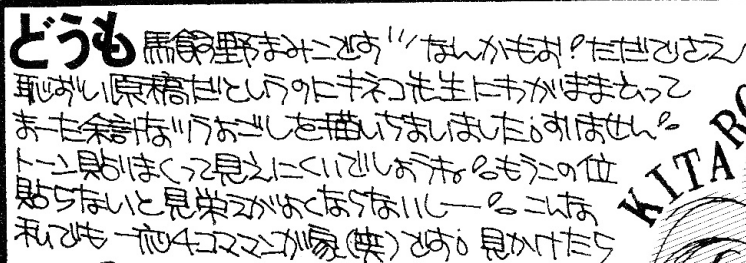 どうも 馬飼野まみこです!! なんかもお!ただでさえ
恥ずい原稿だというのにキネコ先生にわがままいって
まーた余計ならくがきを描いちまいました。すいません。
トーン貼りまくって見えにくいでしょうね。もうこの位
貼らないと見栄えがよくならないしー。こんな
私でも一応4コママンガ家(笑)です。見かけたら
KITARO